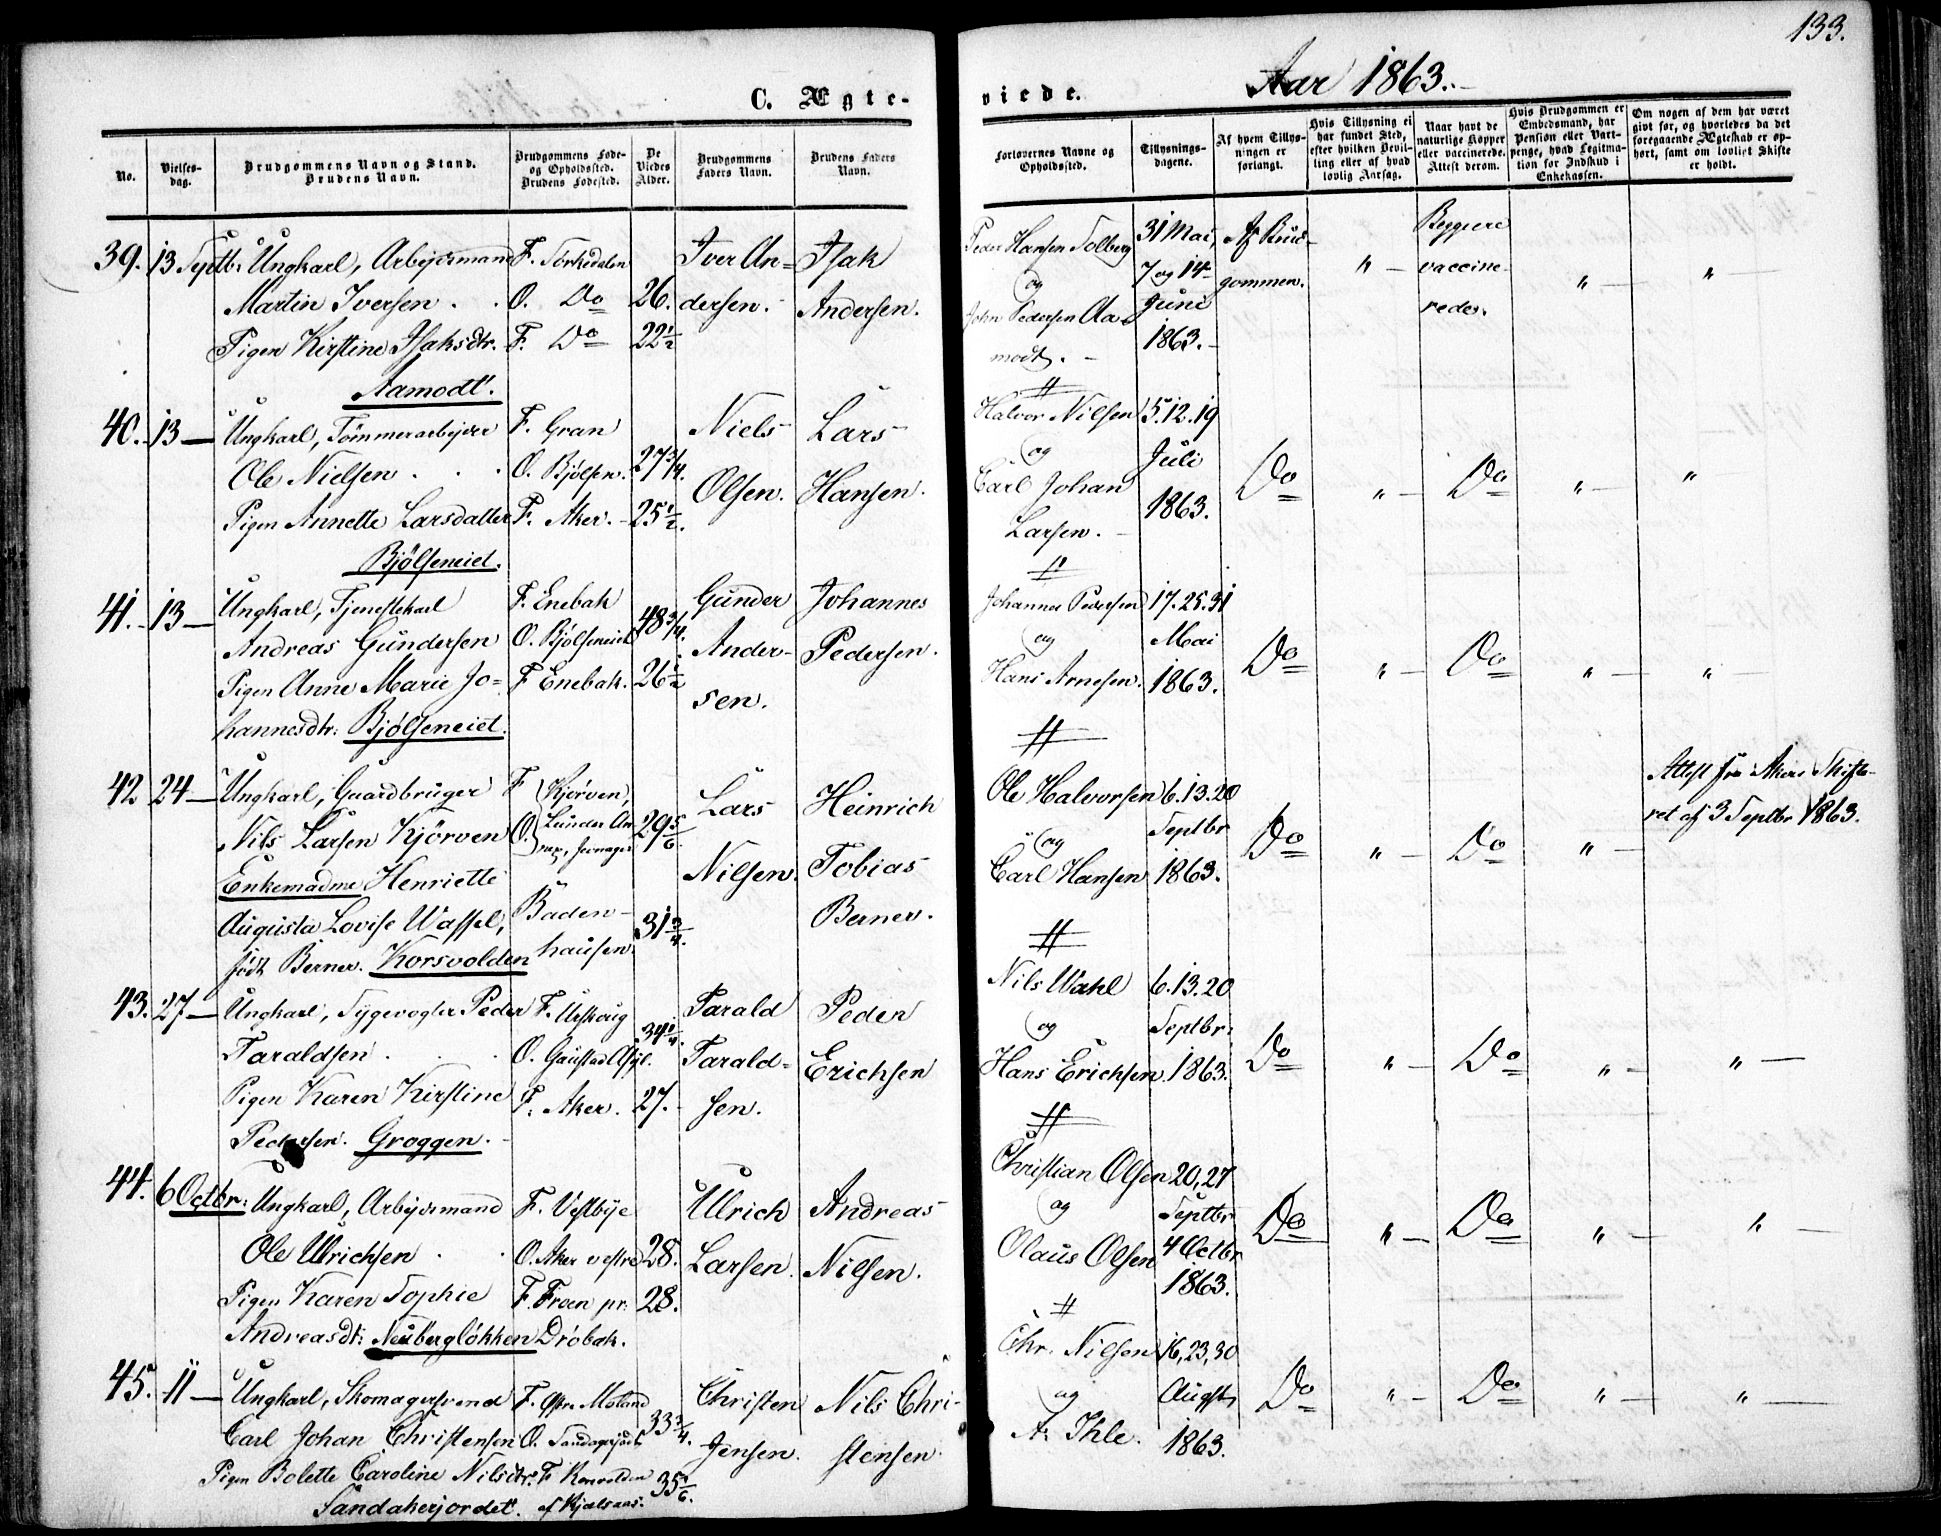 133.
C. Ægte-
viede.
Aar 1863.
No.
Vielses-
dag.
Brudgommens Navn og Stand.
Brudens Navn.
Brudgommens Føde-
og Opholdssted.
Brudens Fødested.
De
Viedes
Alder.
Brudgommens
Faders Navn.
Brudens Faders
Navn.
Forlovernes Navne og
Opholdssted.
Tillysnings-
dagene.
Af hvem Tillys-
ningen er
forlangt.
Hvis Tillysning ei
har fundet Sted,
efter hvilken Bevil-
ling eller af hvad
lovlig Aarsag.
Naar havt de
naturlige Kopper
eller vaccinerede.
Attest derom.
Hvis Brudgommen er
Embedsmand, har
Pension eller Vart-
penge, hvad Legitima-
tion for Indskud i
Enkekassen.
Om nogen af dem har været
gift før, og hvorledes da det
foregaaende Ægteskab er op-
hørt, samt om lovligt Skifte
er holdt.
39. 13 Septbr: Ungkarl, Arbejdsmand
Martin Iversen
Pigen Kirstine Isaksdtr.
Aamodt.
F. Sørkedalen
O. Do
F. Do
26.
22 1/2
Iver An-
dersen.
Isak
Andersen.
Peder Hansen Solberg
og
John Pedersen Aa-
modt.
31 Mai,
7 og 14
Juni
1863.
Af Brud-
gommen.
" Begge ere
vaccine-
redes.
" "
40. 13 Ungkarl, Tømmerarbejder
Ole Nielsen
Pigen Annette Larsdatter
Bjølseneiet.
F. Gran
O. Bjølsen.
F. Aker.
27 3/4.
25 1/2.
Niels
Olsen.
Lars
Hansen.
Halvor Nilsen
og
Carl Johan
Larsen.
5. 12. 19
Juli
1863.
Do " Do " "
41. 13 Ungkarl, Tjenestekarl
Andreas Gundersen
Pigen Anne Marie Jo-
hannesdtr: Bjølseneiet.
F. Enebak
O. Bjølseneiet
F. Enebak.
48 3/4.
26 1/2
Gunder
Ander-
sen.
Johannes
Pedersen.
Johannes Pedersen
og
Hans Arnesen.
17. 25. 31
Mai
1863.
Do " Do " "
42. 24 Ungkarl, Gaardbruger
Nils Larsen Kjørven
Enkemadme Henriette
Augusta Lovise Wassel,
født Berner. Korsvolden
F. Kjørven,
O. Lunder An
nex, Jevnager
Baden-
hausen.
29 5/6.
31 3/4.
Lars
Nilsen.
Heinrich
Tobias
Berner.
Ole Halvorsen
og
Carl Hansen
6. 13. 20
Septbr
1863.
Do " Do "
Attest fra Akers Skifte-
ret af 3 Septbr 1863.
43. 27 Ungkarl, Sygevogter Peder
Taraldsen
Pigen Karen Kirstine
Pedersen. Groggen.
F. Urskoug
O. Gaustad Asyl.
F. Aker.
34 1/4.
27.
Tarald
Tarald-
sen.
Peder
Erichsen
Nils Wahl
og
Hans Erichsen
6. 13. 20
Septbr:
1863.
Do " Do " "
44. 6 Octbr: Ungkarl, Arbejdsmand
Ole Ulrichsen
Pigen Karen Sophie
Andreasdt: Neubergløkken
F. Vestbye
O. Aker vestre
F. Froen pr.
Drøbak.
28.
28.
Ulrich
Larsen.
Andreas
Nilsen.
Christian Olsen
og
Olaus Olsen
20, 27
Septbr
4 Octbr
1863.
Do " Do " "
45. 11 Ungkarl, Skomagersvend
Carl Johan Christensen
Pigen Bolette Caroline Nilsdtr:
Sandakerjordet.
F. Østre Moland
O.
F. Korsvolden
af Kjelsaas.
33 3/4.
35 5/6.
Christen
Jensen.
Nils Chri-
stensen
Chr. Nilsen
og
A. Ihle.
16, 23, 30
August
1863.
Do " Do " "